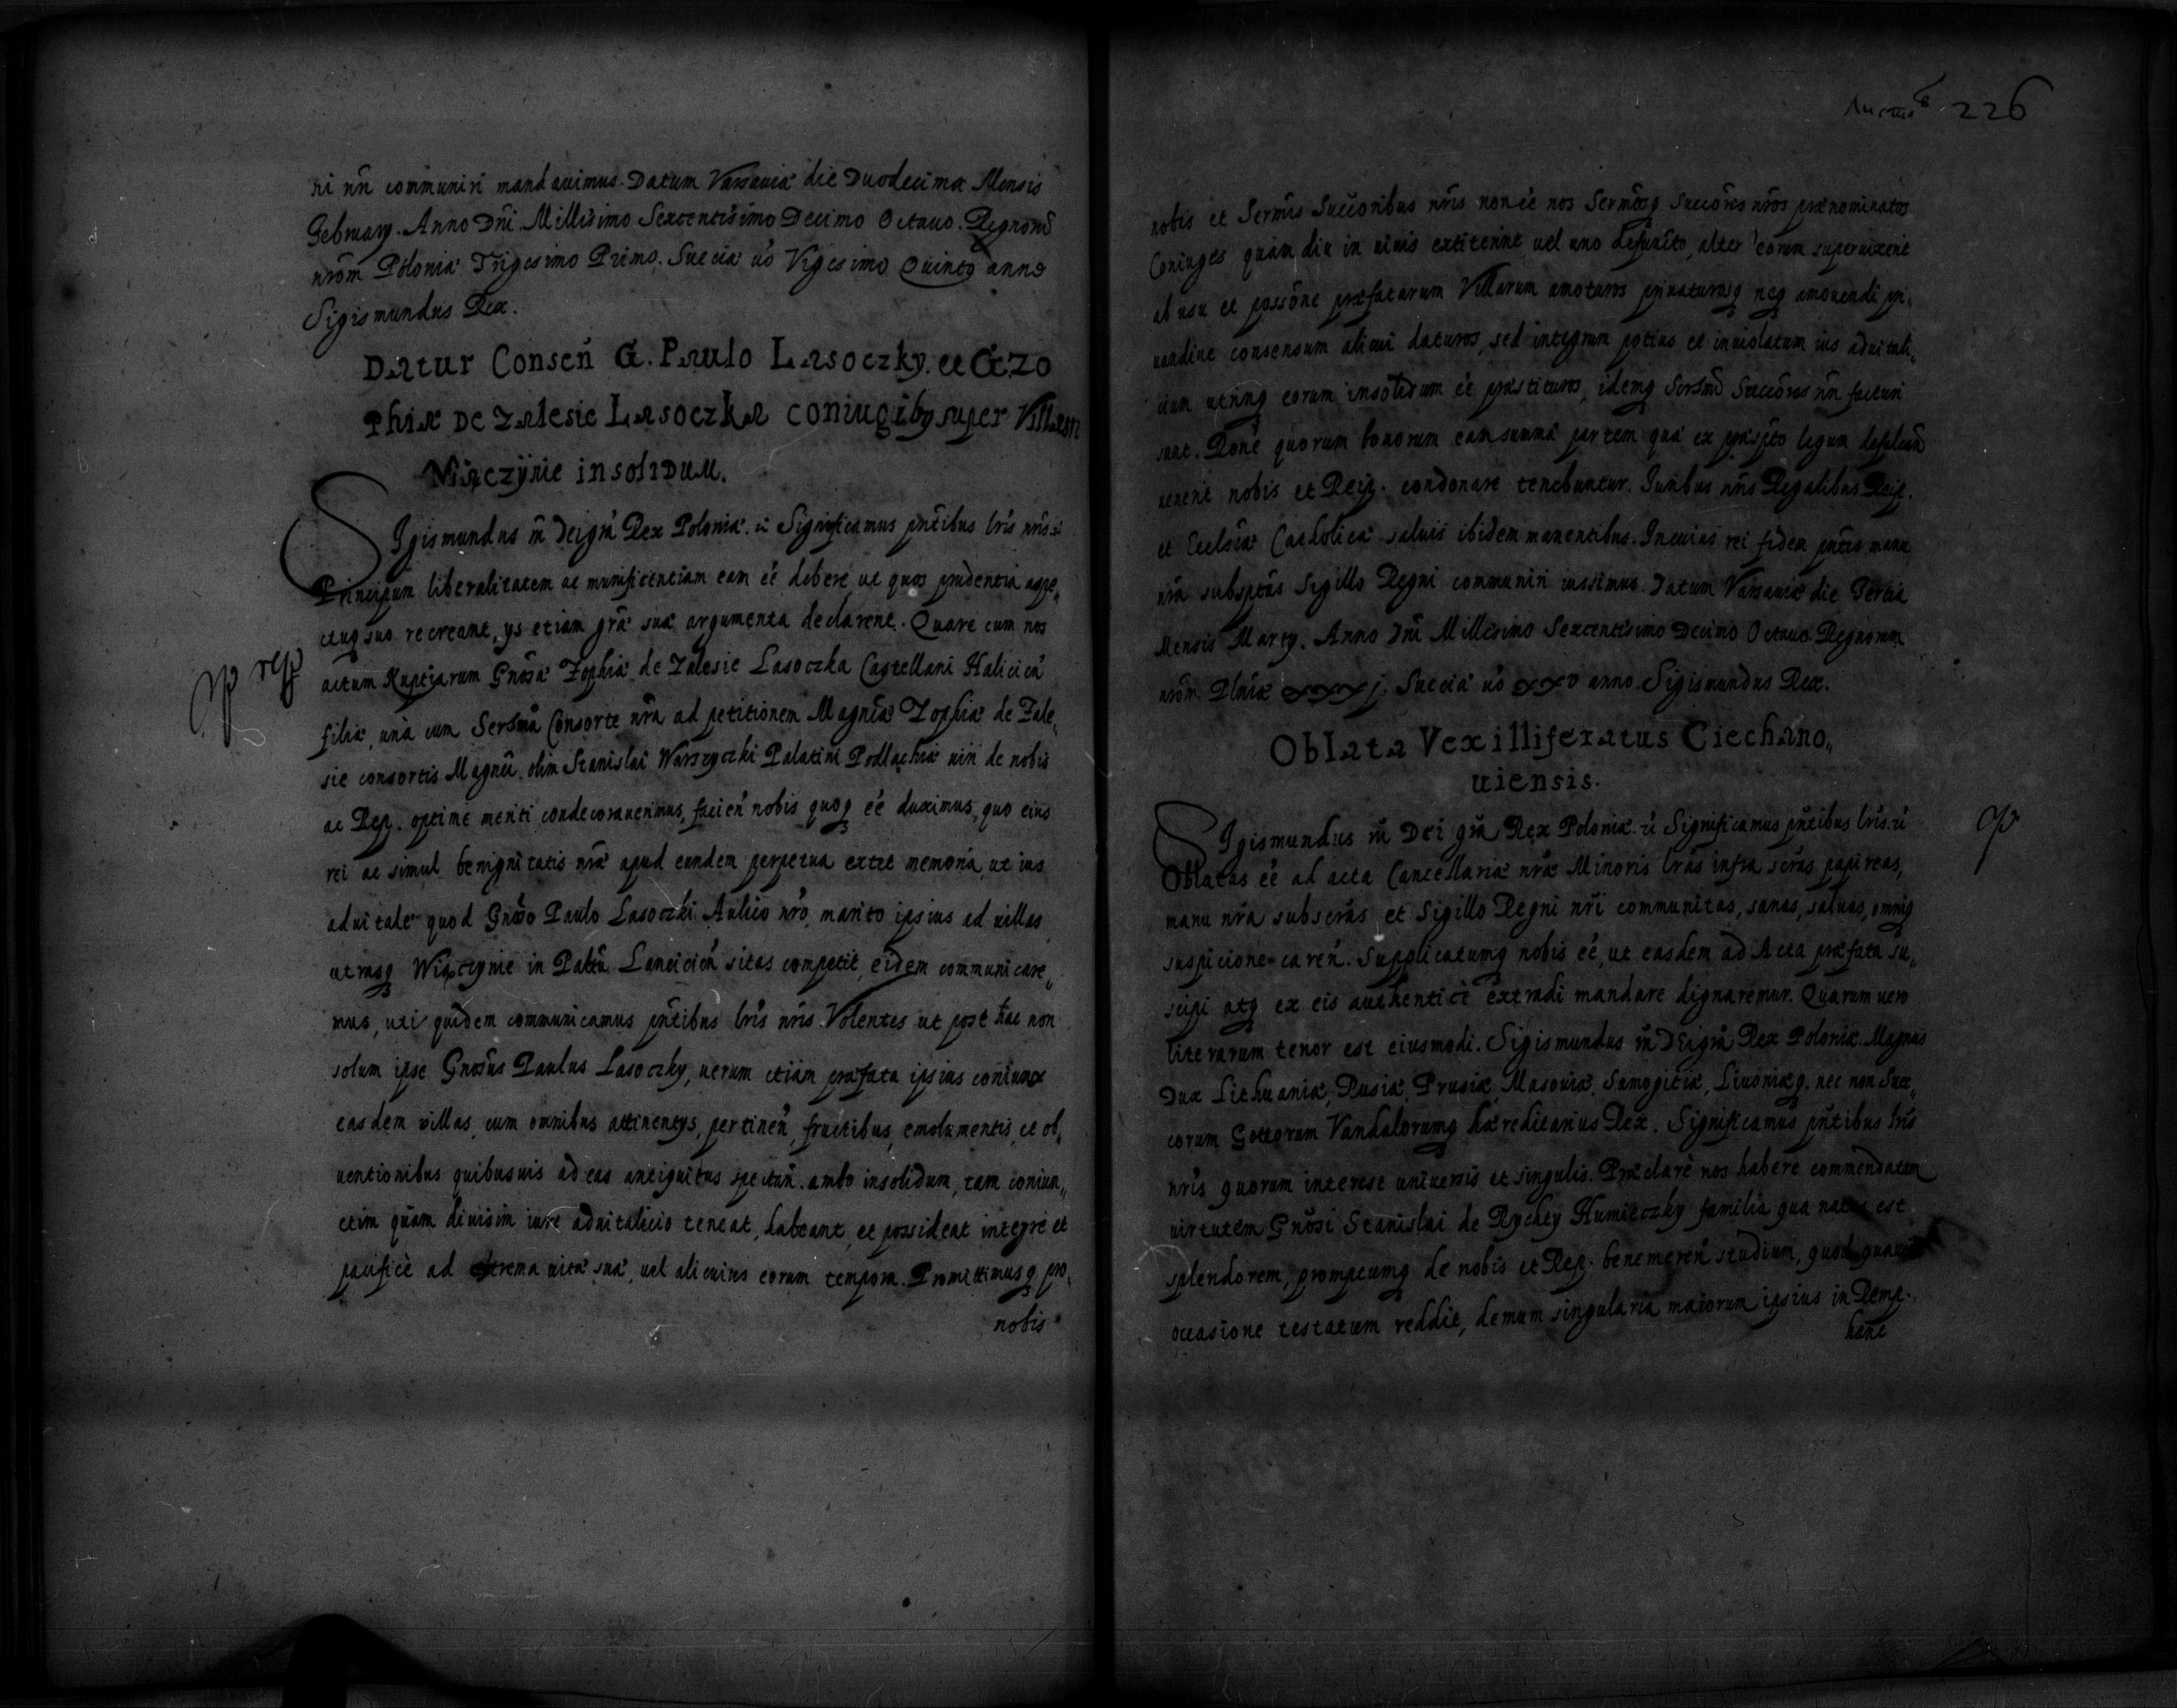 ri nři communiri mandauimus. Datum Varsauiæ die Duodecima Mensis
Februarÿ. Anno Dñi Millesimo Sexcentesimo Decimo Octauo. Regnorũ
nrõm Poloniæ Trigesimo Primo. Sueciæ uõ Vigesimo Quinto anno
Sigismundus Rex.
Datur Conseñ G. Paulo Lasoczky. et G. Zo
phiæ de Zalesie Lasoczka coniugibq super Villam
Miączÿnie insolidum.
Sigismundus iii Dei grã Rex Poloniæ. ĩ Significamus pñtibus lrĩs nrĩs
Principum liberalitatem ac munificentiam eam eẽ debere ut quos prudentia aspe„
ctuq suo recreant, ys etiam grãe suæ argumenta declarent. Quare cum nos
actum Nuptiarum Gnõsæ Zophiæ de Zalesie Lasoczka Castellani Halicień
filiæ, unà cum Sermã Consorte nrã ad petitionem Magnĩæ Zophiæ de Zale„
sie consortis Magnĩi olim Stanislai Warszyczki Palatini Podlachiæ uiri de nobis
ac Rep. optime meriti condecorauerimus, facień nobis quoq eẽ duximus, quo eius
rei ac simul benignitatis nrãe apud eundem perpetua extet memoria, ut ius
aduitale quod Gnõso Paulo Lasoczki Aulico nrõ, marito ipsius ad uillas
utrasq Wiączynie in Paltũ Lancicień sitas competit, eidem communicare„
mus, uti quidem communicamus pñtibus lrĩs nrĩs. Volentes ut post hac non
solum ipse Gnõsus Paulus Lasoczky, uerum etiam præfata ipsius coniunx
easdem villas, cum omnibus attinentÿs, pertineñ, fructibus, emolumentis, et ob„
uentionibus quibusuis ad eas antiquitus spectañ. ambo insolidum, tam coniun„
ctim quam diuisim iure aduitalicio teneat, habeant, et possideat integrè et
pacificè ad extrema uitæ suæ, uel alicuius eorum tempora. Promittimusq pro„
nobis
226
nobis et Sermĩs Succoribus nrĩs non eẽ nos Sermõsq Succõres nrõs prænominatos
Coniuges quàm diu in uiuis extiterint uel uno defuncto, alter eorum superuixerit
ab usu et possõne præfatarum Villarum amoturos priuaturosq neq amouendi pri„
uandiue consensum alicui daturos, sed integrum potius et inuiolatum ius aduitali„
cium utriusq eorum insolidum eẽ præstituros, idemq Sermĩ Succõres nrĩ facturi
sunt. Rõne quorum bonorum eam summæ partem quæ ex præscpto legum
uenerit nobis et Reip. condonare tenebuntur. Iuribus nrĩs Regalibus Reip.
et Ecclsiæ Catholicæ saluis ibidem manentibus. In cuius rei fidem pñtes manu
nrã subsptas Sigillo Regni communiri iussimus. Datum Varsauiæ die Tertia
Mensis Martÿ. Anno Dñi Millesimo Sexcentesimo Decimo Octauo. Regnorum
nrõm Plniæ xxxj. Sueciæ uõ xxv anno. Sigismundus Rex.
Oblata Vexilliferatus Ciechano„
uiensis.
Sigismundus iii Dei grã Rex Poloniæ. ĩ Significamus pñtibus lrĩs. ĩ
Oblatas eẽ ad acta Cancellariæ nræ Minoris lrãs infra scrãs papireas,
manu nrã subscrãs et Sigillo Regni nrĩ communitas, sanas, saluas, omniq
suspicione careñ. Supplicatumq nobis eẽ, ut easdem ad Acta præfata su„
scipi atq ex eis authenticè extradi mandare dignaremur. Quarum uero
literarum tenor est eiusmodi. Sigismundus iii Dei grã Rex Poloniæ. Magnus
Dux Lithuaniæ, Rusiæ, Prusiæ, Masouiæ, Samogitiæ, Liuoniæq. nec non Sue„
corum Gottorum Vandalorumq hæreditarius Rex. Significamus pñtibus lrĩs
nrĩs quorum interest uniuersis et singulis. Præclarè nos habere commendatam
uirtutem Gnõsi Stanislai de Rychty Humieczky familiæ qua natus est
splendorem, promptumq de nobis et Rep. benemereñ studium, quod quauis
occasione testatum reddit, demum singularia maiorum ipsius in Remp.
hanc